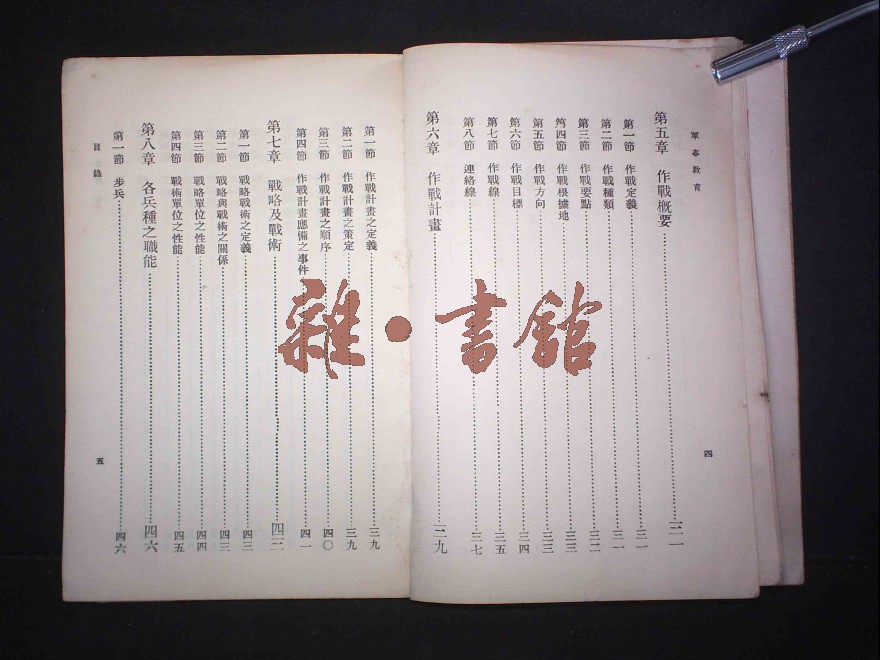 軍事教育
第五章 作戰概要 三一
第一節 作戰定義 三一
第二節 作戰種類 三一
第三節 作戰要點 三二
第四節 作戰根據地 三三
第五節 作戰方向 三三
第六節 作戰目標 三四
第七節 作戰線 三五
第八節 連絡線 三七
第六章 作戰計畫 三九
四
第一節 作戰計畫之定義 三九
第二節 作戰計畫之策定 三九
第三節 作戰計畫之順序 四〇
第四節 作戰計畫應備之事件 四一
第七章 戰略及戰術 四三
第一節 戰略戰術之定義 四三
第二節 戰略與戰術之關係 四三
第三節 戰略單位之性能 四四
第四節 戰術單位之性能 四五
第八章 各兵種之職能 四六
第一節 步兵 四六
目錄
五
雜·書館